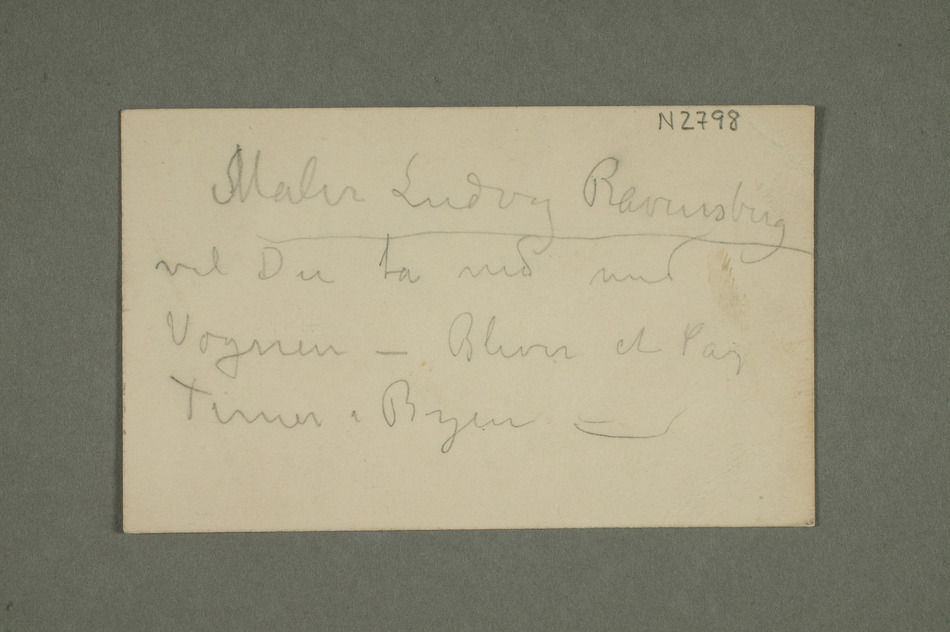 N2798
Maler Ludvig Ravensberg
vil Du ta ned med
Vognen – Bliver et Par
Timer i Byen –